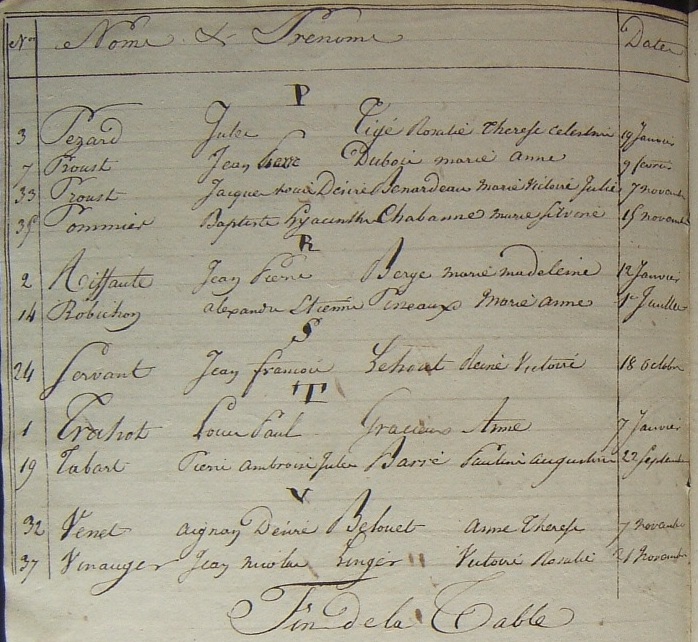 Nos Noms & Prénoms Dates
P
3 Pezard Jules Tigé Rosalie Therese Celestine 19 Janvier
7 Proust Jean Dubois marie anne 9 fevrier
33 Proust Jacques Louis Désiré Benardeau Marie Victoire Julie 7 novembre
35 Pommier Baptiste hyacinthe Chabanne marie silvine 15 novembre
R
2 Riffault Jean Pierre Berge marie madeleine 12 Janvier
14 Robichon alexandre Etienne Pineaux Marie anne 1er Juillet
S
24 Servant Jean francois Lehout Reine Victoire 18 octobre
T
1 Trahot Louis Paul Anne 7 Janvier
19 Tabart Pierre ambroise Jules Barré Pauline augustine 22 Septembre
V
32 Venet aignan Désiré Belouet anne Therese 7 novembre
37 Vinauger Jean nicolas Linger Victoire Rosalie 21 Novembre
Fin de la Table